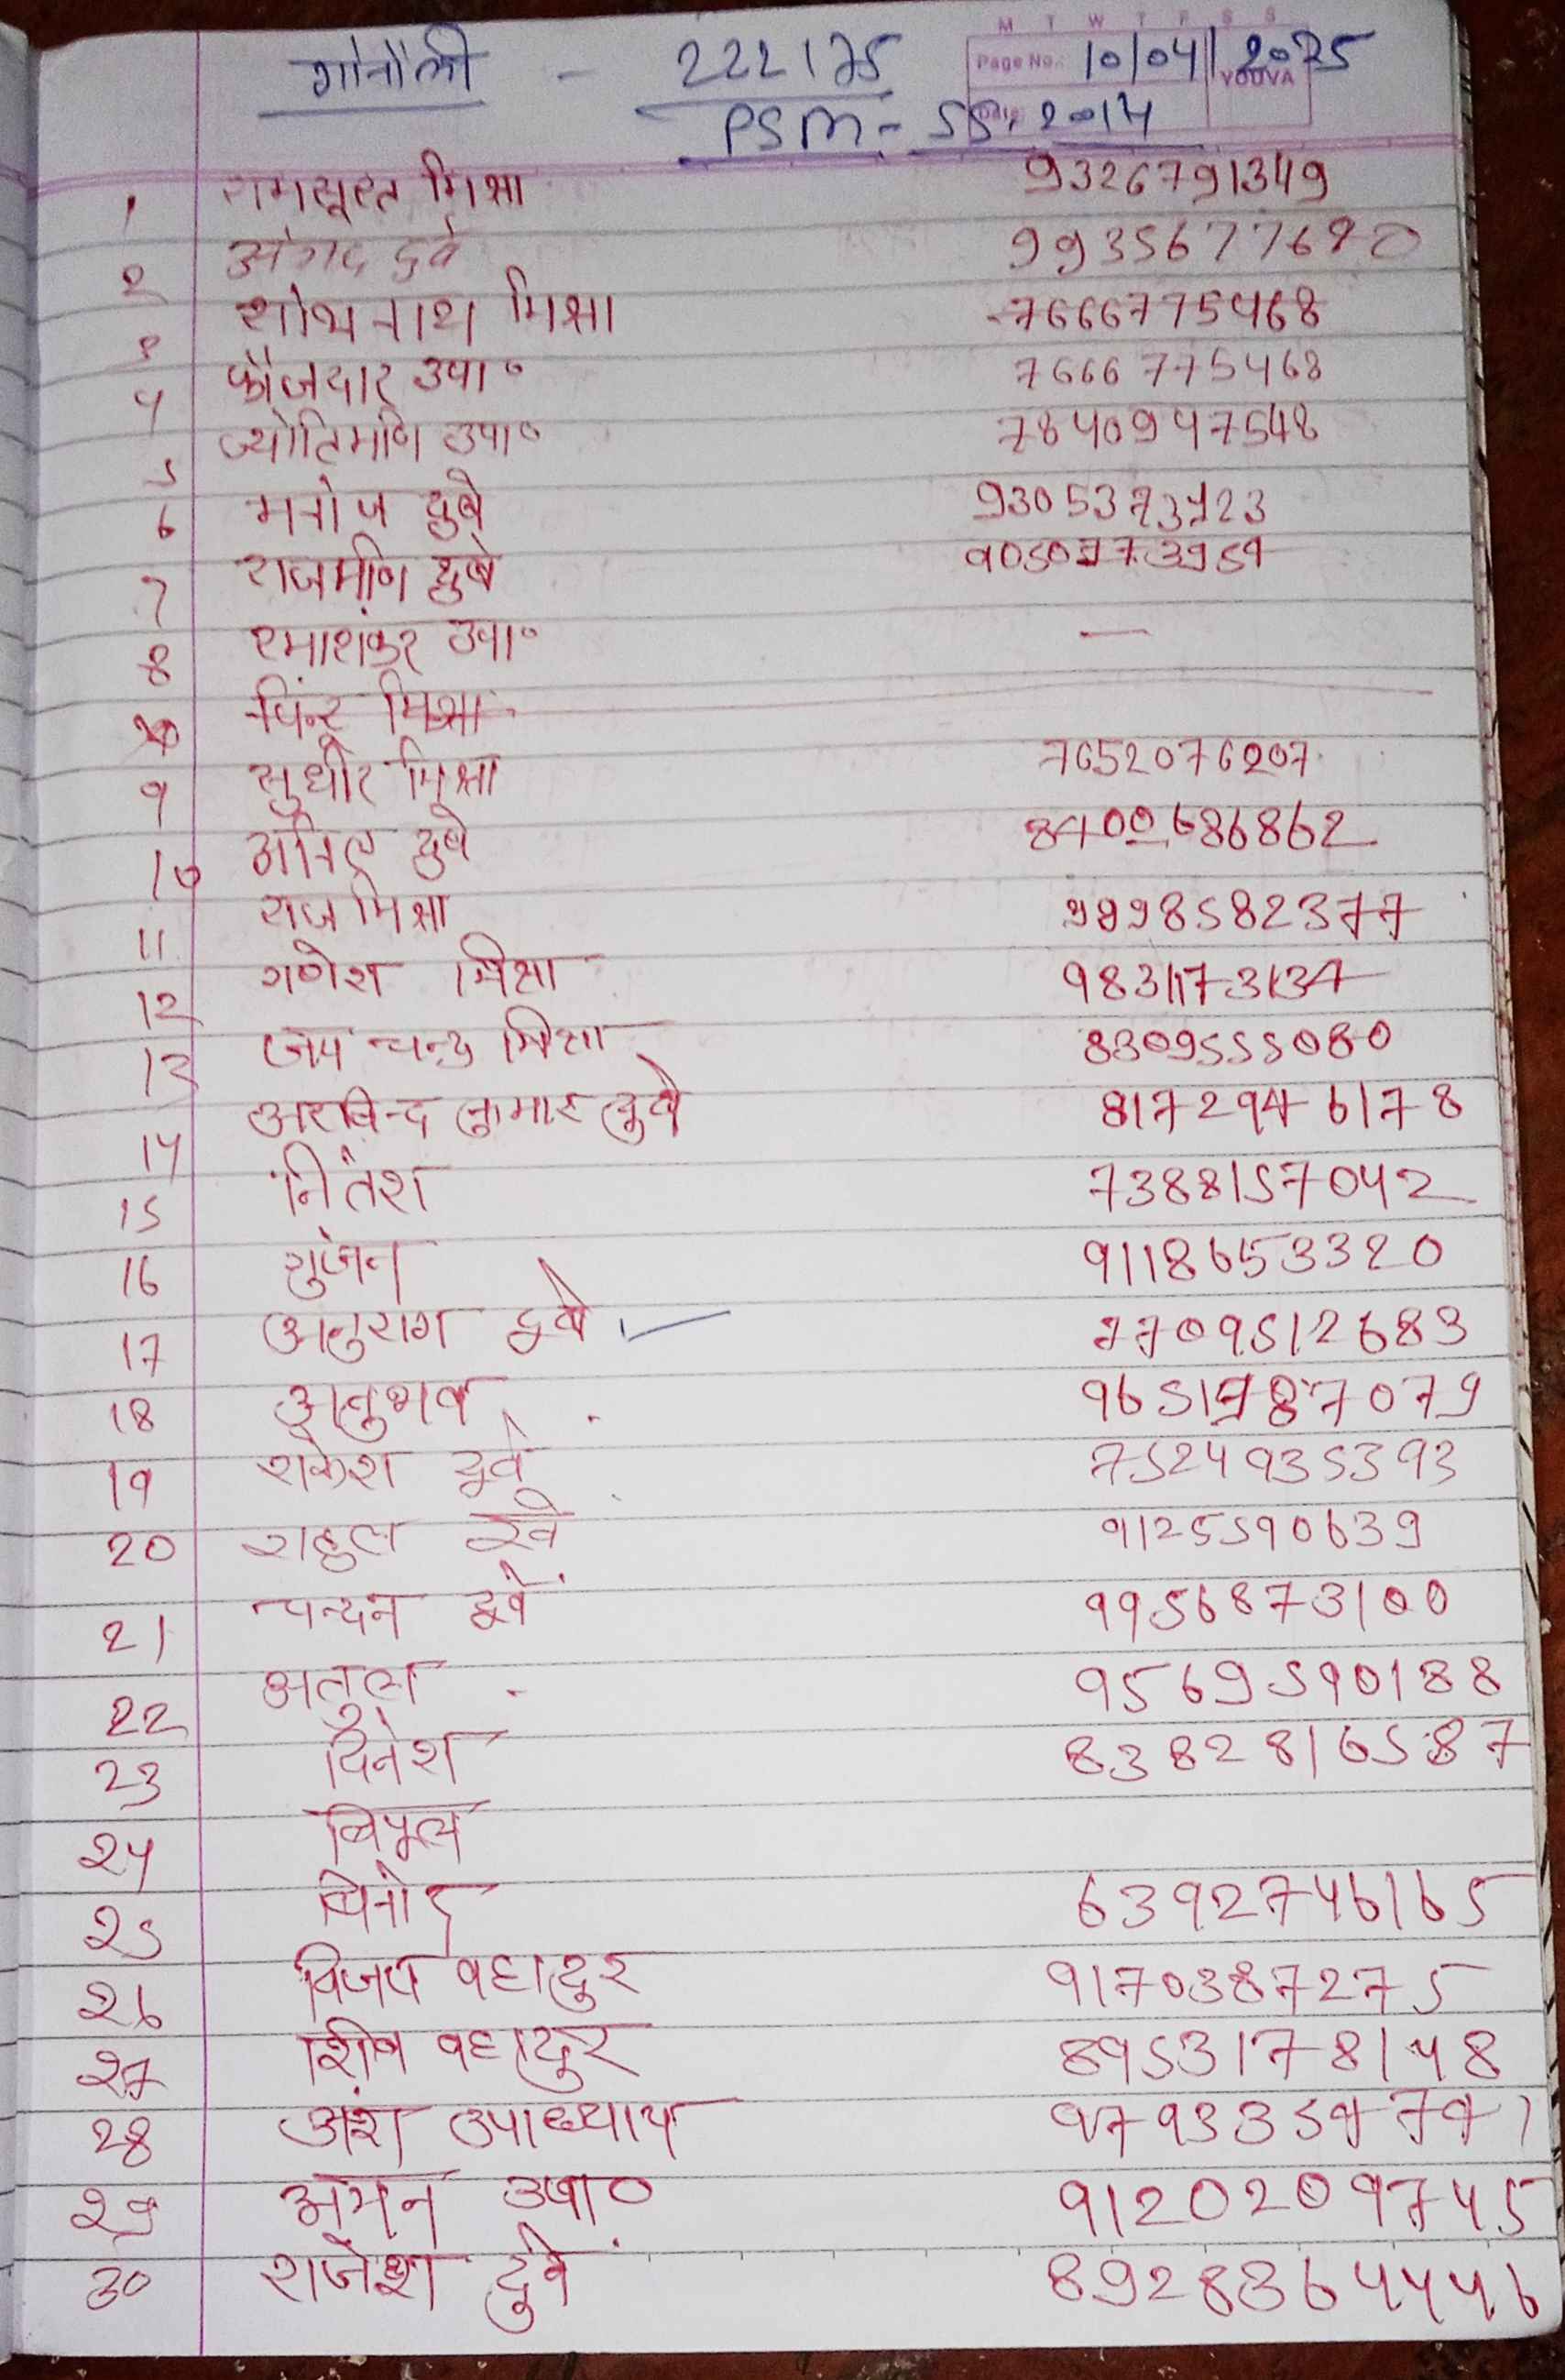 गोनौली - 222175
M T W T F S S
Page No.: 10/04/2025
YOUVA
PSM - SS, 2014
1 रामसूरत मिश्रा 9326791349
2 अंगद दुबे 9935677690
3 शोभनाथ मिश्रा 7666775468
4 फौजदार उपा० 7666775468
5 ज्योतिमणि उपा० 7840947548
6 मनोज दुबे
7 राजमणि दुबे
8 रमाशंकर उपा० —
पिन्टू मिश्रा
9 सुधीर मिश्रा 7652076207
10 अनिल दुबे 8400686862
11 राज मिश्रा 9998582377
12 गणेश मिश्रा 9831173137
13 जय चन्द्र मिश्रा 8309555080
14 अरविन्द कुमार दुबे 8172946178
15 नितेश 7388157042
16 गुंजन 9118653320
17 अनुराग दुबे 7709512683
18 अनुभव
19 राकेश दुबे 7524935393
20 राहुल दुबे 9125590639
21 चन्दन दुबे 9956873100
22 अतुल 9569590188
23 दिनेश 8382816587
24 बिपुल
25 विनोद 6392746165
26 विजय बहादुर 9170387275
27 शिव बहादुर 8953178148
28 अंश उपाध्याय 9793359797
29 अमन उपा० 9120209745
30 राजेश दुबे 8928364446